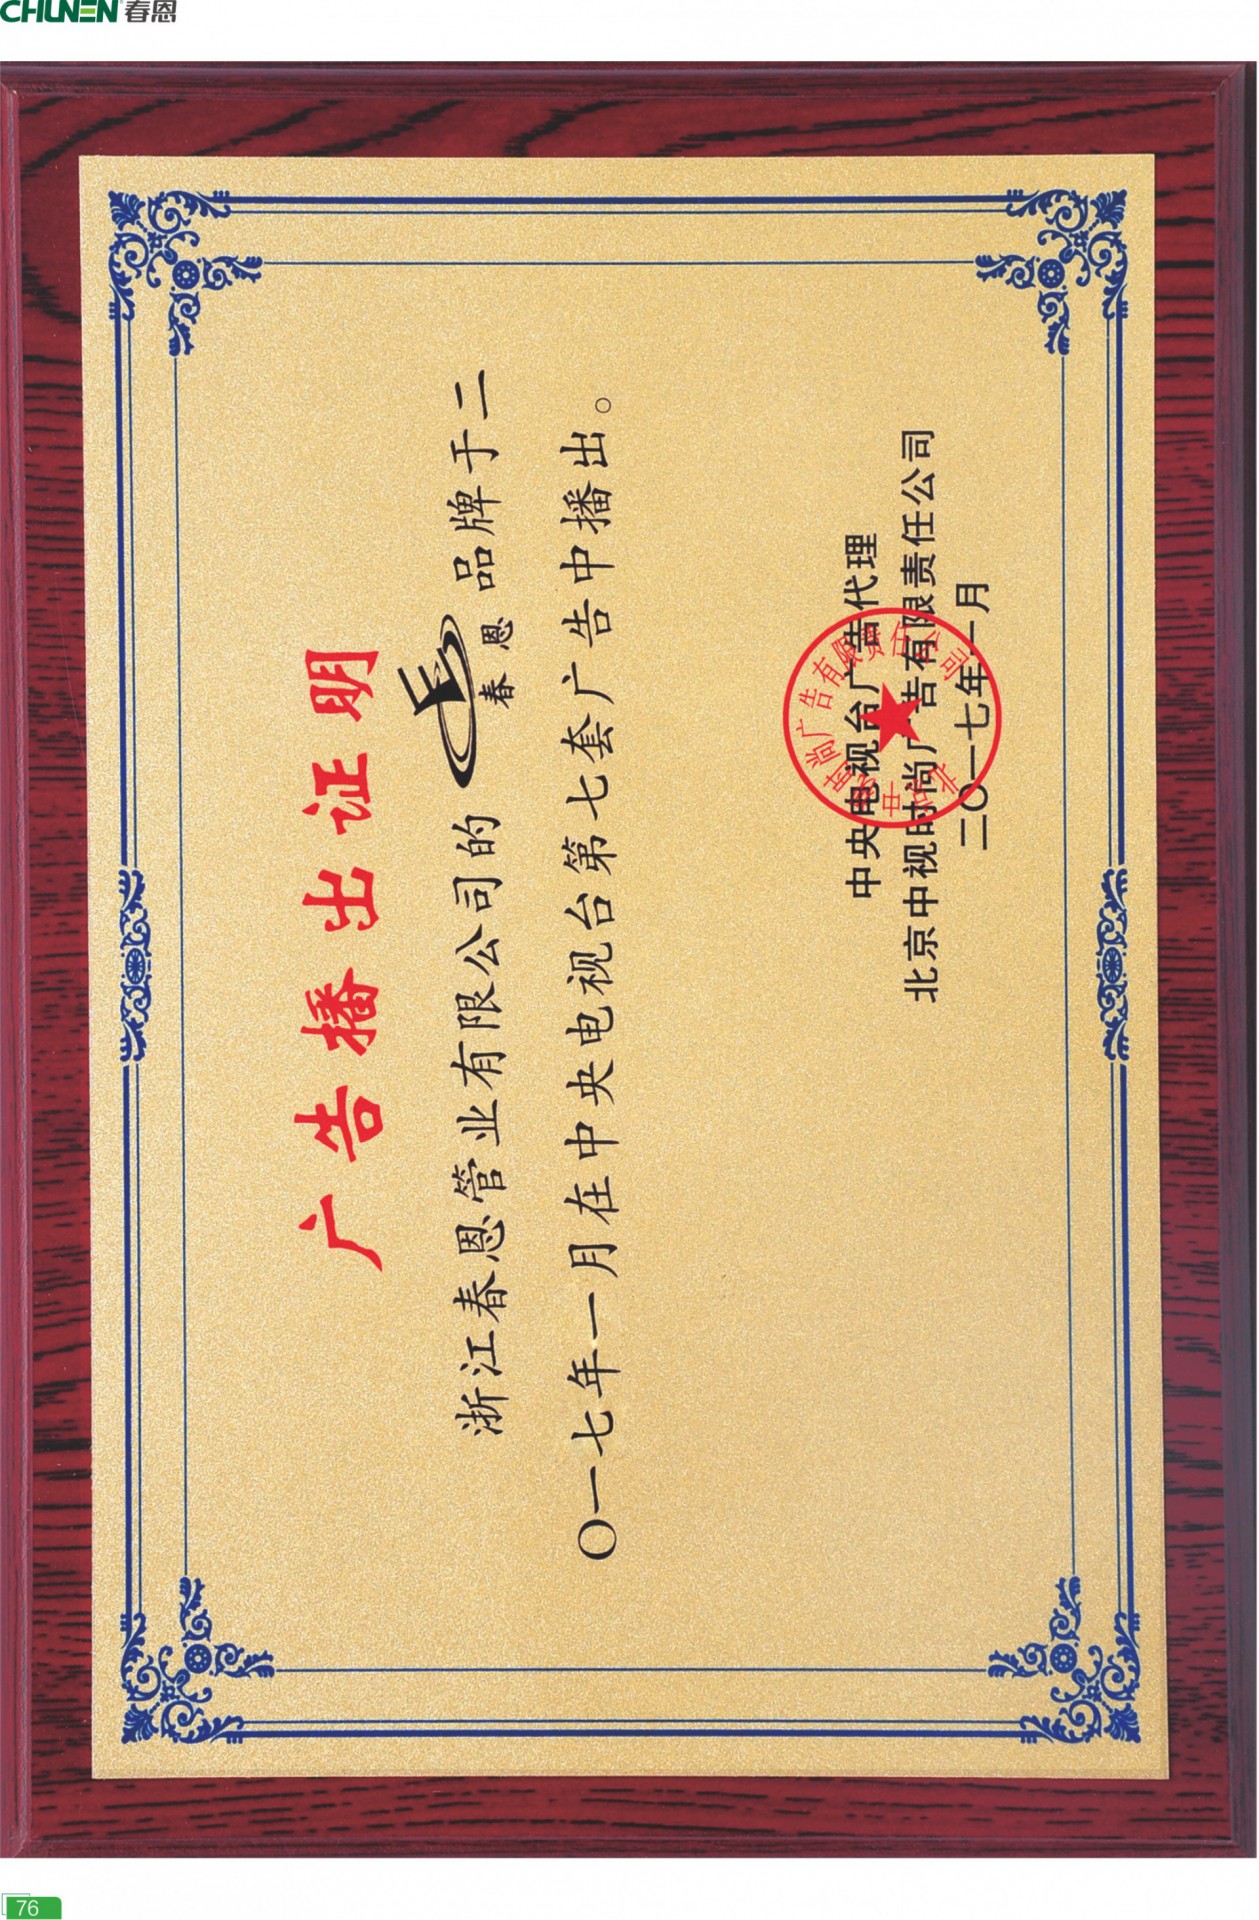 CHUNEN 春恩
广告播出证明
浙江春恩管业有限公司的 春恩 品牌于二
〇一七年一月在中央电视台第七套广告中播出。
中央电视台广告代理
北京中视时尚广告有限责任公司
二〇一七年一月
北京中视时尚广告有限责任公司
76